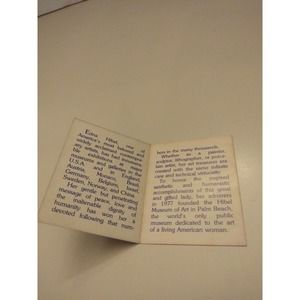 Edna Hibel, one of
America's most beloved and
widely acclaimed contempor-
ary artists, has had innumera-
ble exhibitions at
museums and galleries in the
U.S.A. and England,
Austria, Monaco, Brazil,
Germany, Belgium, Israel,
Sweden, Norway, and China.
Her gentle but penetrating
message of peace, love and
the inalienable dignity of
humanity has won her a
devoted following that num-
bers in the many thousands.
Whether as a painter,
sculptor, lithographer, or porce-
lain artist, her art treasures are
created with the same
care and technical virtuosity.
To honor the inspired
aesthetic and humanistic
accomplishments of this great
and gifted lady, her admirers
in 1977 founded the Hibel
Museum of Art in Palm Beach,
the world's only public
museum dedicated to the art
of a living American woman.